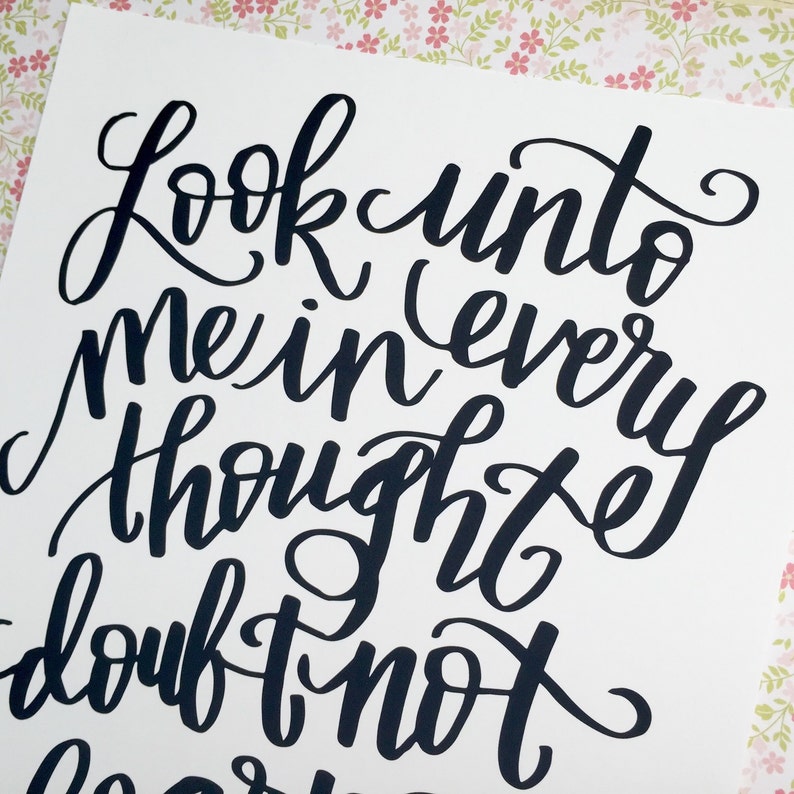 Look unto
me in every
thought
doubt not